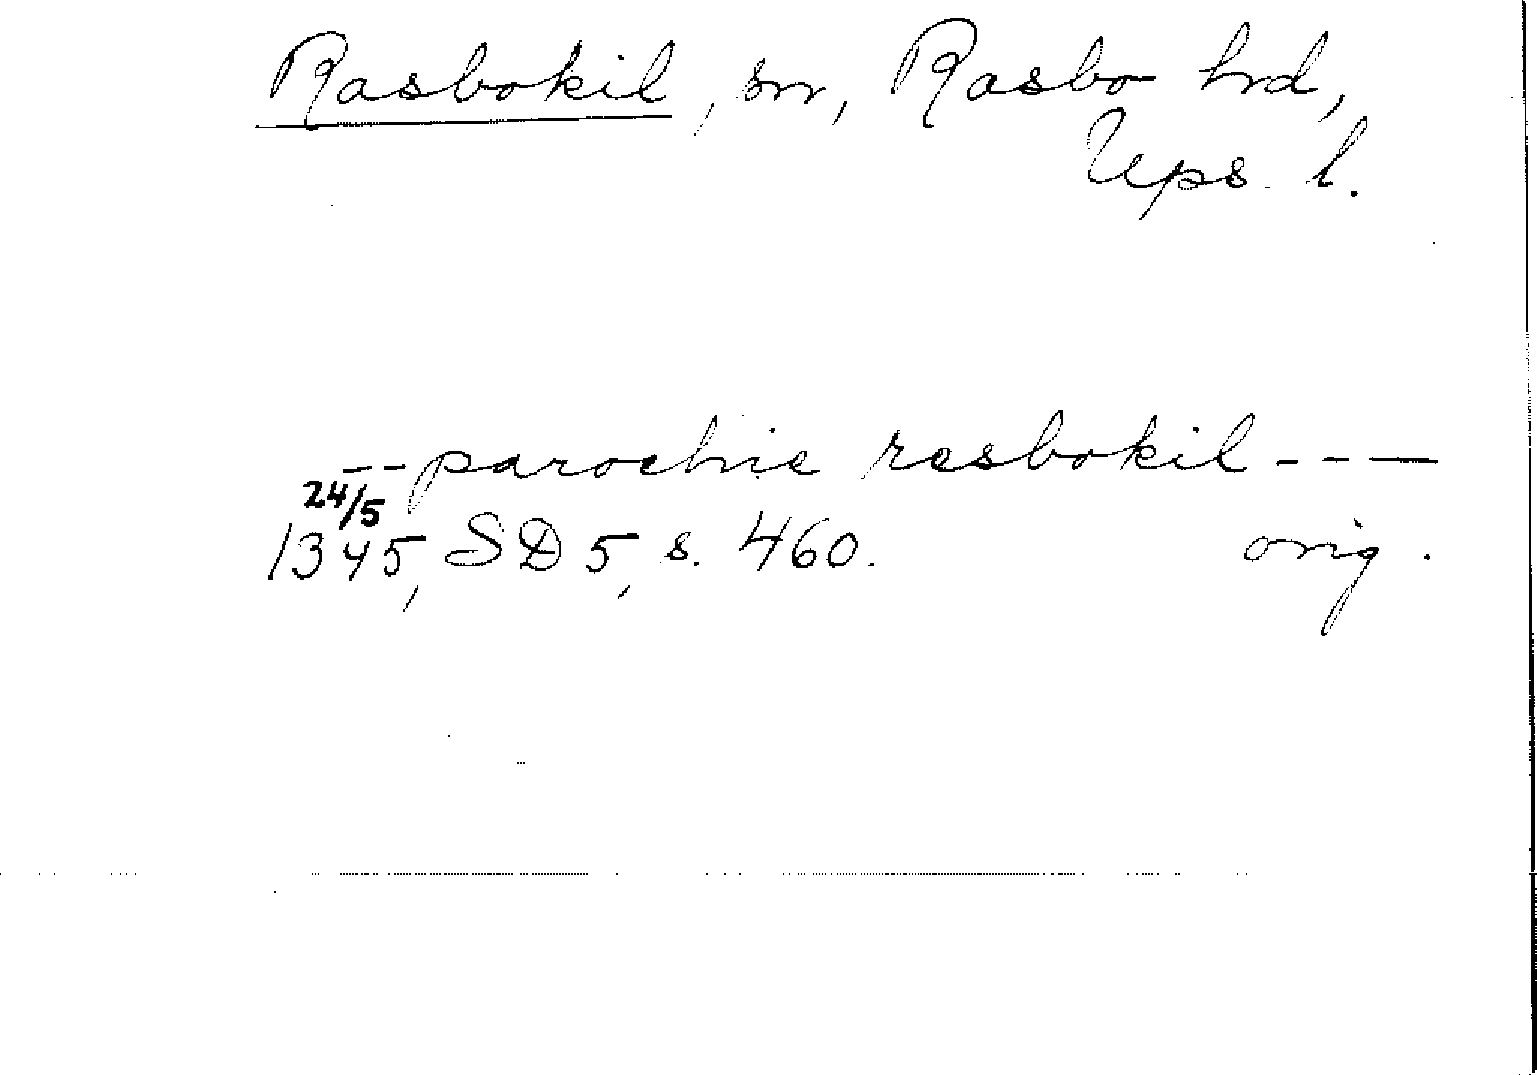 Rasbokil, sn, Rasbo hd,
Ups. l.
-- parochie resbokil ---
24/5
1345, SD 5, s. 460. orig.